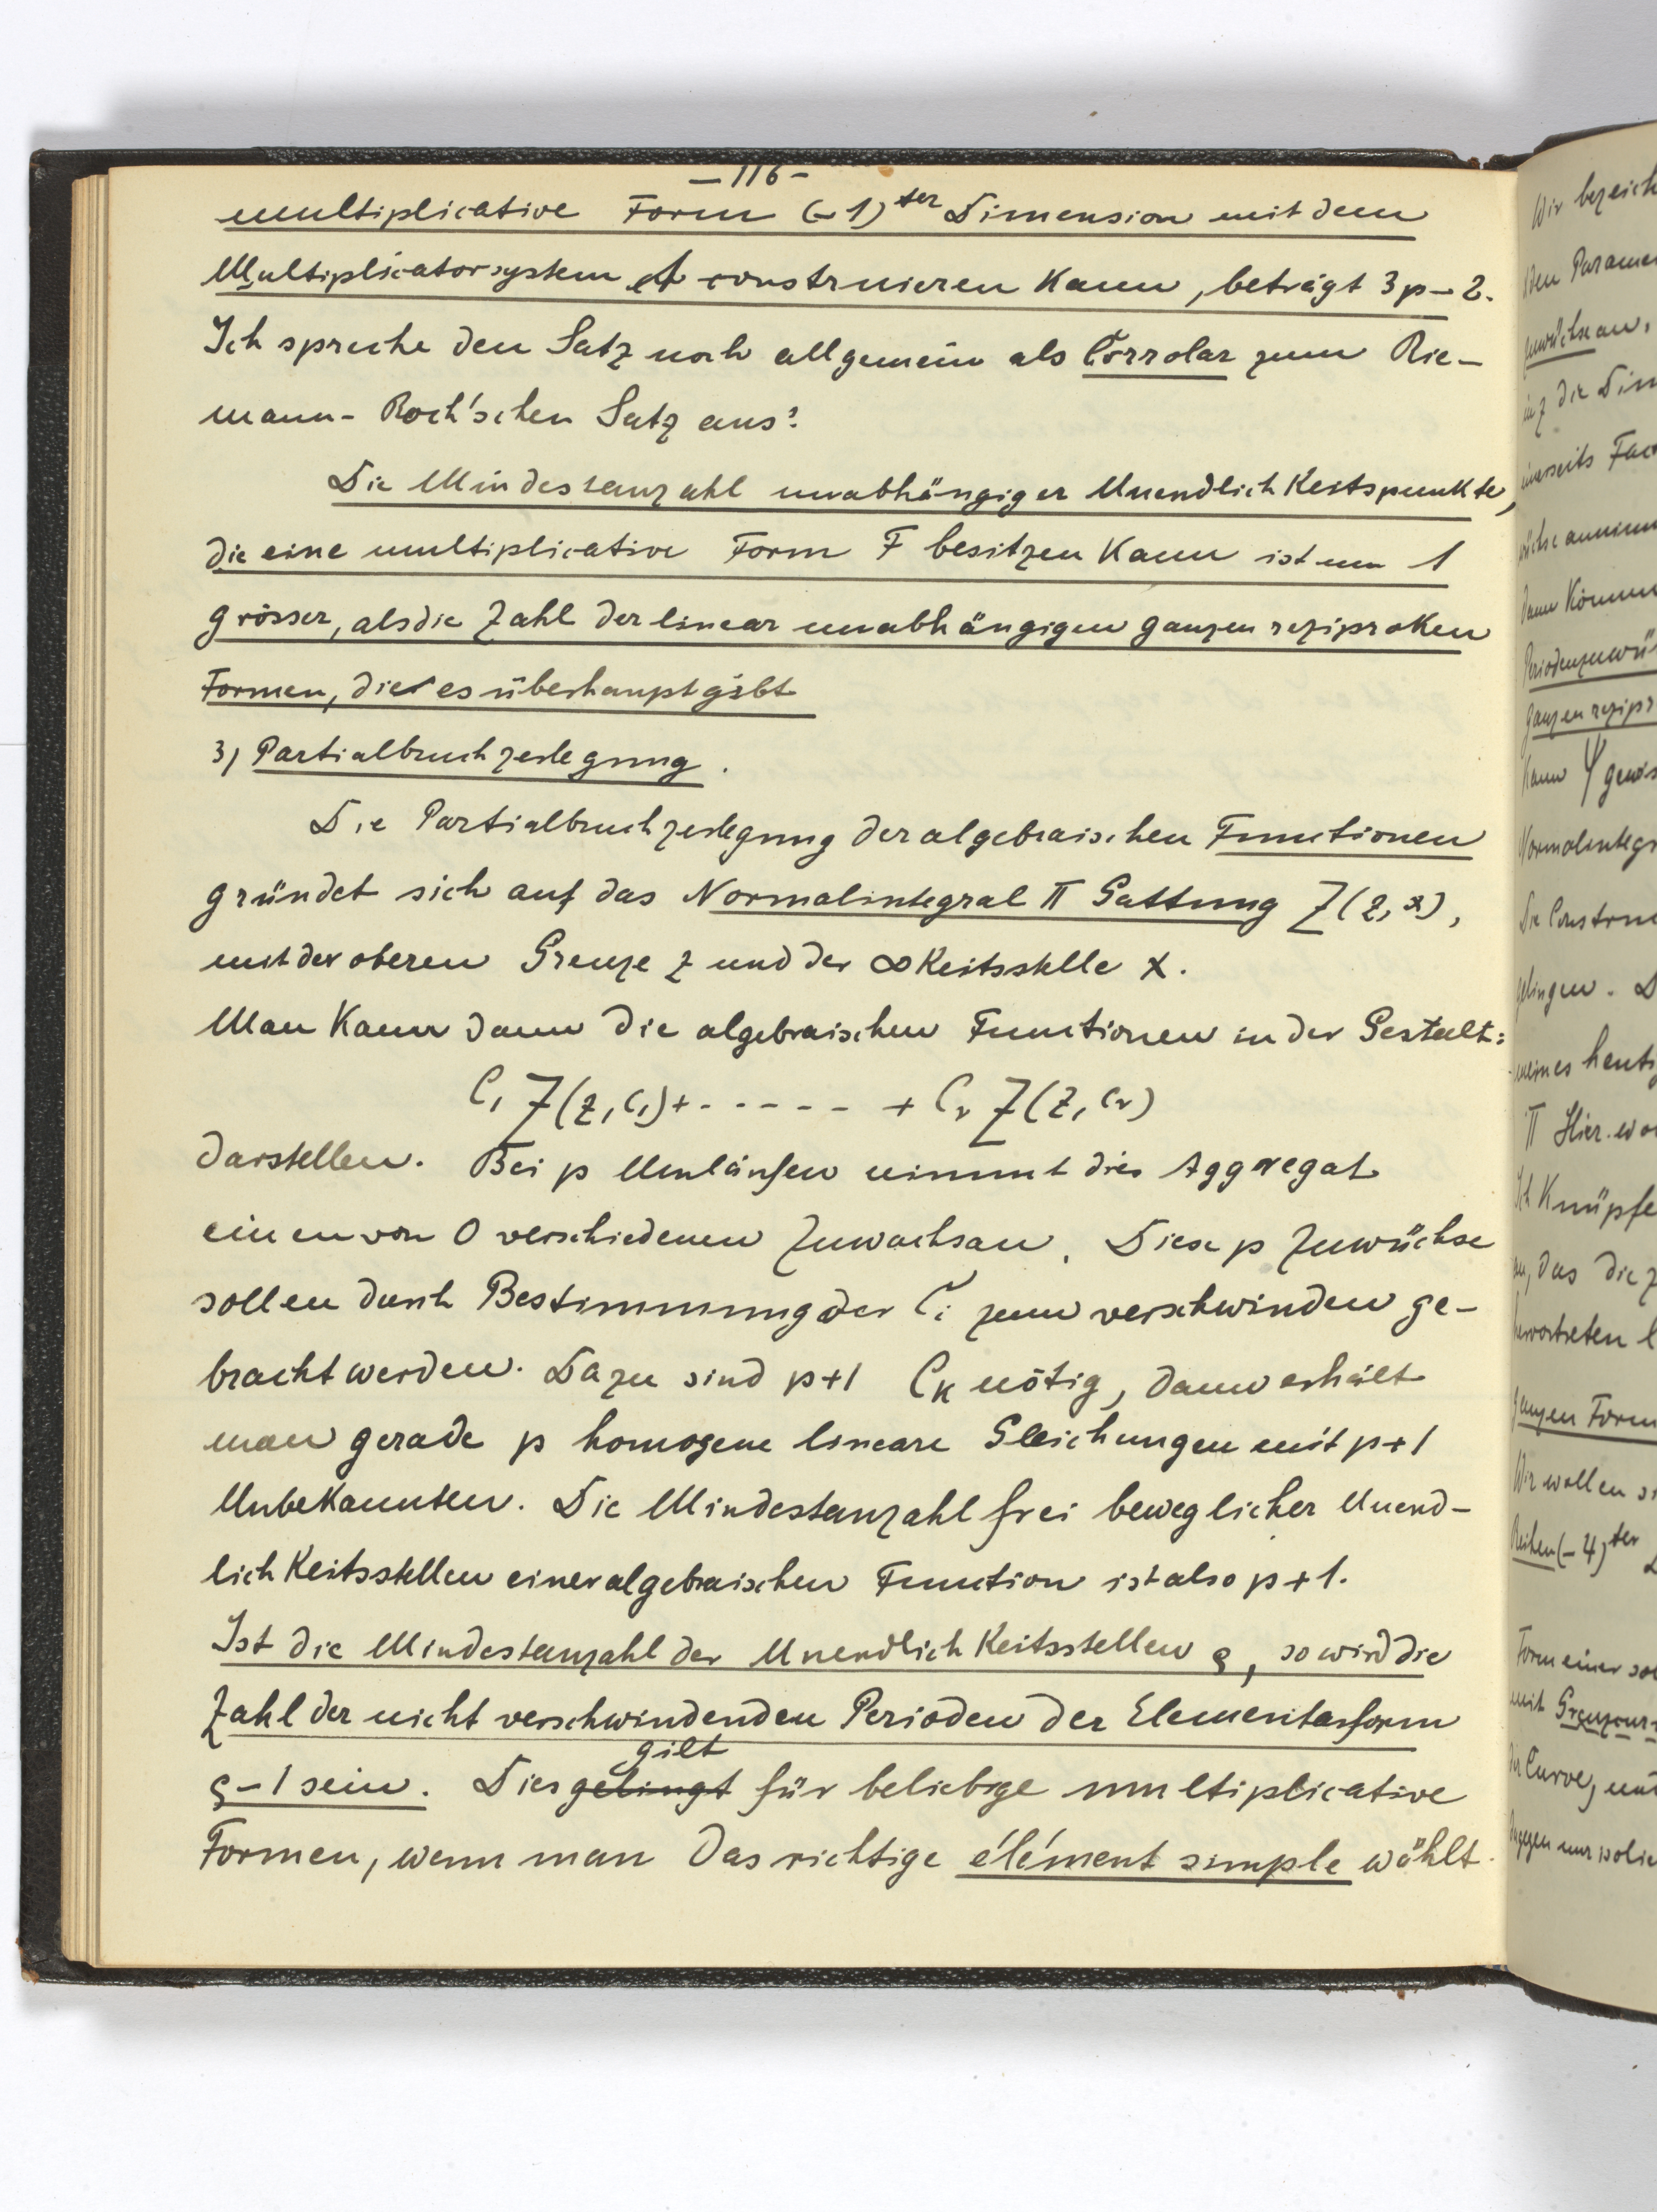 – 116 –
multiplicative Form (–1)ter Dimension mit dem
Multiplicatorsystem A construieren kann, beträgt 3p – 2.
Ich spreche den Satz noch allgemein als Corrolar zum Rie-
mann-Roch'schen Satz aus:
Die Mindestanzahl unabhängiger Unendlichkeitspunkte,
die eine multiplicative Form F besitzen kann ist um 1
grösser, als die Zahl der linear unabhängigen ganzen reziproken
Formen, die es überhaupt gibt
3) Partialbruchzerlegung.
Die Partialbruchzerlegung der algebraischen Functionen
gründet sich auf das Normalintegral II Gattung Z(z, x),
mit der oberen Grenze z und der ∞keitsstelle x.
Man kann dann die algebraischen Functionen in der Gestalt:
C₁ Z(z, c₁) + - - - - - + Cᵣ Z(z, cᵣ)
darstellen. Bei p Umläufen nimmt dies Aggregat
einen von 0 verschiedenen Zuwachs an. Diese p Zuwüchse
sollen durch Bestimmung der Cᵢ zum verschwinden ge-
bracht werden. Dazu sind p+1 Cₖ nötig, dann erhält
man gerade p homogene lineare Gleichungen mit p+1
Unbekannten. Die Mindestanzahl frei beweglicher Unend-
lichkeitsstellen einer algebraischen Function ist also p+1.
Ist die Mindestanzahl der Unendlichkeitsstellen ϱ, so wird die
Zahl der nicht verschwindenden Perioden der Elementarform
gilt
ϱ – 1 sein. Dies gelingt für beliebige multiplicative
Formen, wenn man das richtige élément simple wählt.
Wir bezeich
den Parame
an,
die Dim
Fac
annimm
dann Könn
Periodenzuwü
ganzen rezipr
kann φ gewis
Normalintegr
Die Constru
gelingen. D
meines heuti
II Hier wo
Ich Knüpfe
an, das die z
hervortreten
ganzen Form
Wir wollen
Reihen (–4)ter
Form einer
mit Grenzcur
die Curve, und
dagegen nur